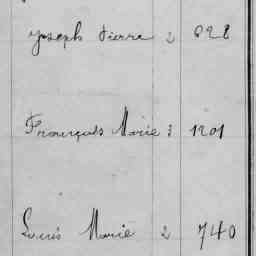 Joseph Pierre 2 628
François Marie 3 1201
Louis Marie 2 740